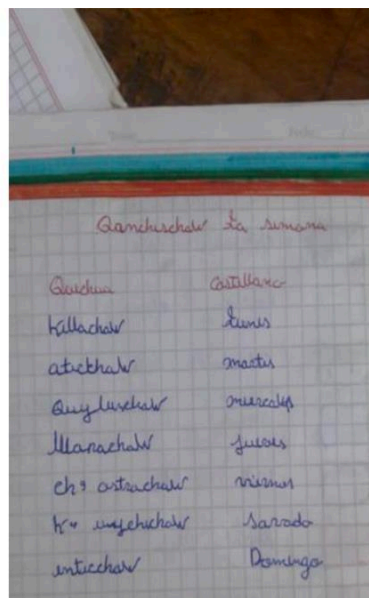 Qanchischaw La semana
Quichua Castellano
Killachaw Lunes
atickhaw martes
Quyllurchaw miercoles
Illanachaw jueves
ch' astrachaw viernes
K" uychichaw Savado
inticchaw Domingo